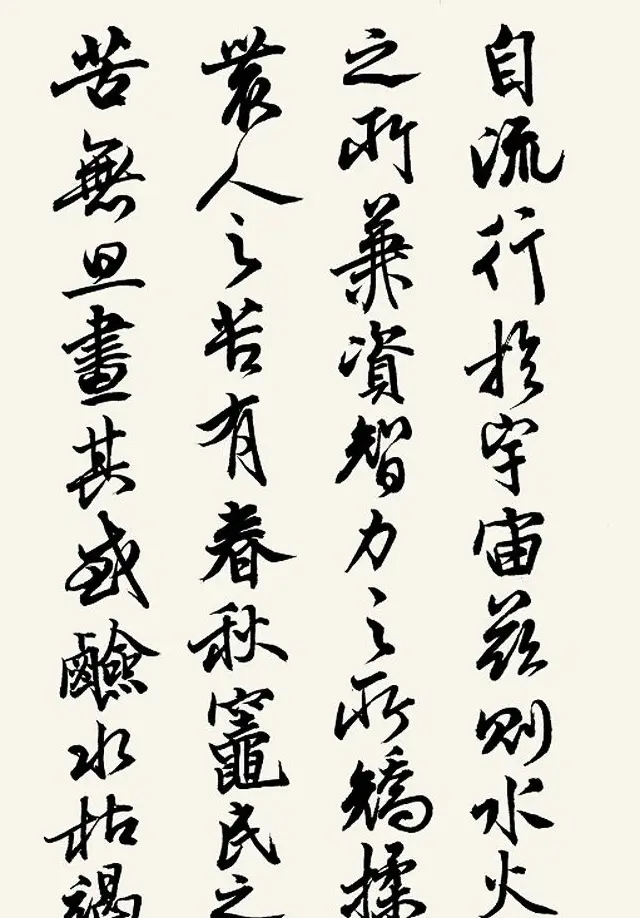 自流行於宇宙茲則水火
之所兼資智力之所矯揉
農人之苦有春秋竈民之
苦無旦晝其或鹼水枯竭